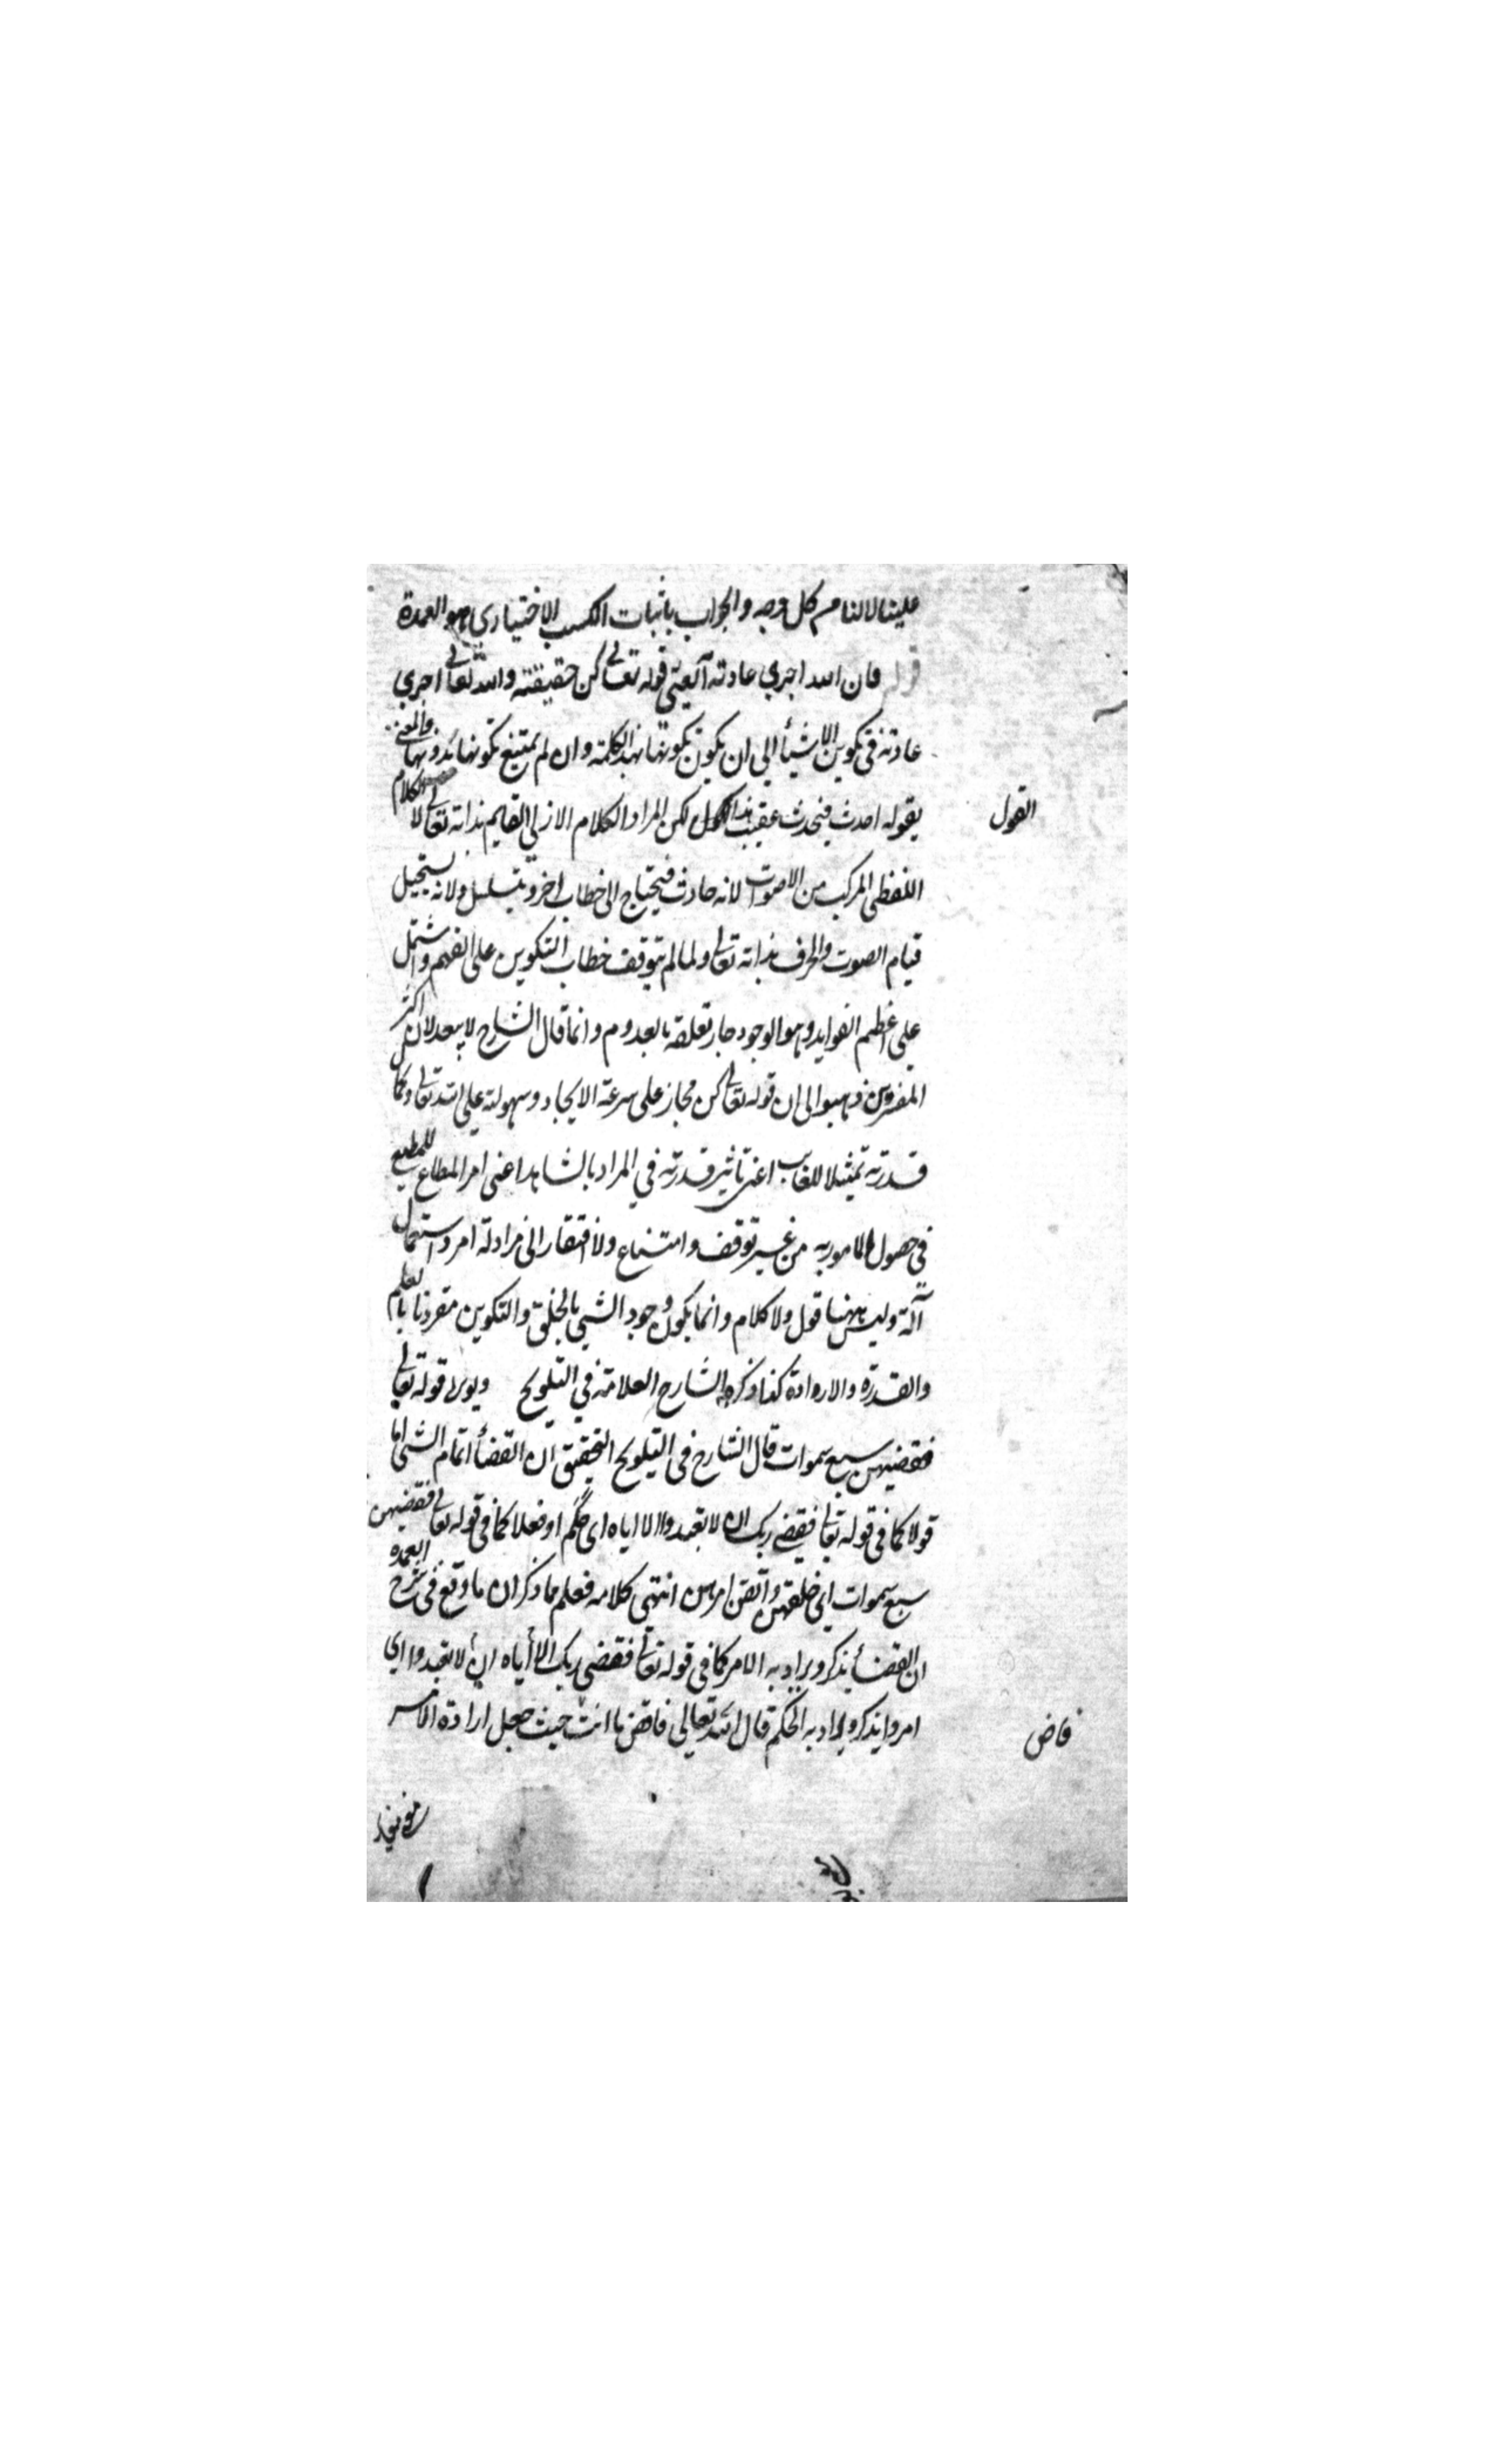 علينا لا لنا من كل وجه والجواب باثبات الكسب الاختياري هو العمدة
قوله فان الله اجري عادته آه يعني قوله تعالى كن حقيقته والله تعالى اجري
عادته في تكوين الاشيأ الي ان يكون تكونها بهذا الكلمة وان لم يمتنع تكونها بدونها والمعنى
يقوله احدث فيحدث عقيب هذا القول لكن المراد الكلام الازلي القايم بذاته تعالى لا الكلام
القول
اللفظي المركب من الاصوات لانه حادث فيحتاج الى خطاب اخر ويتسلسل ولانه يستحيل
قيام الصوت والحرف بذاته تعالى ولما لم يتوقف خطاب التكوين على الفهم واشتمل
علي اعظم الفوايد وهو الوجود جاز تعلقه بالمعدوم وانما قال الشارح لا يبعد لان اكثر
المفسرين ذهبوا الى ان قوله تعالى كن مجاز على سرعة الايجاد وسهولته علي الله تعالى وكمال
قدرته تمثيلا للغايب اعني تاثير قدرته في المراد بالشاهد اعني امر المطاع للمطيع
في حصول المامور به من غير توقف وامتناع ولا افتقار الى مزاولة امر واستعمال
آلة وليس ههنا قول ولا كلام وانما يكون وجود الشيئ بالخلق والتكوين مقرونا بالعلم
والقدرة والارادة كذا ذكره الشارح العلامة في التلويح ويؤيده قوله تعالى
فقضيهن سبع سموات قال الشارح في التلويح التحقيق ان القضأ اتمام الشئ اما
قولا كما في قوله تعالى فقضى ربك ان لا تعبدوا الا اياه اي حكم او فعلا كما في قوله تعالى فقضيهن
سبع سموات اي خلقهن واتقن امرهن انتهى كلامه فعلم مما ذكر ان ما وقع في شرح العمدة
ان القضأ يذكر ويراد به الامر كما في قوله تعالى فقضى ربك الا أياه ان لا تعبدوا اي
امر وايذكر ويراد به الحكم قال الله تعالي فاقض ما انت حيث جعل ارادة الامر
فاض